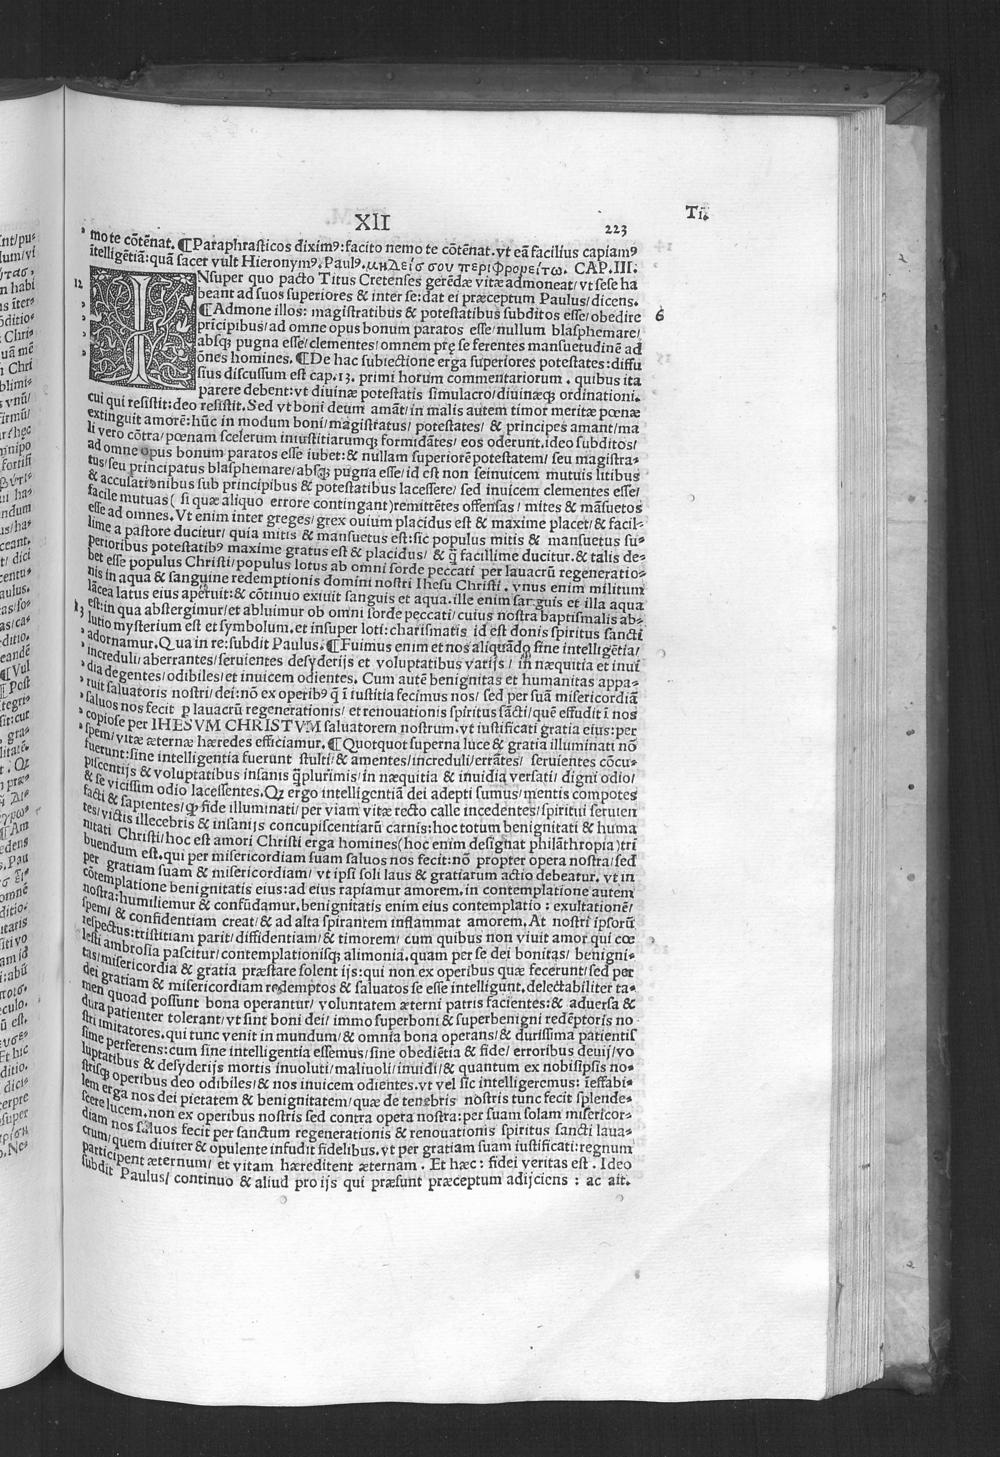 XII
223
Ti.
mo te cõtẽnat. ¶Paraphrasticos diximꝰ: facito nemo te cõtẽnat. vt eã facilius capiamꝰ
ĩtelligẽtiã: quã sacer vult Hieronymꝰ. Paulꝰ. μηδείσ σου περιφρονείτω. CAP. III.
12
INsuper quo pacto Titus Cretenses gerẽdæ vitæ admoneat/ vt sese ha
beant ad suos superiores & inter se: dat ei præceptum Paulus/ dicens.
¶Admone illos: magistratibus & potestatibus subditos esse/ obedire
6
prĩcipibus/ ad omne opus bonum paratos esse/ nullum blasphemare/
absqꝫ pugna esse/ clementes/ omnem pręse ferentes mansuetudinẽ ad
õnes homines. ¶De hac subiectione erga superiores potestates: diffu
sius discussum est cap. 13. primi horum commentariorum. quibus ita
parere debent: vt diuinæ potestatis simulacro/ diuinæqꝫ ordinationi.
cui qui resistit: deo resistit. Sed vt boni deum amãt/ in malis autem timor meritæ pœnæ
extinguit amorẽ: hũc in modum boni/ magistratus/ potestates/ & principes amant/ ma
li vero cõtra/ pœnam scelerum iniustitiarumqꝫ formidãtes/ eos oderunt. ideo subditos/
ad omne opus bonum paratos esse iubet: & nullam superiorẽ potestatem/ seu magistra-
tus/ seu principatus blasphemare/ absqꝫ pugna esse/ id est non seinuicem mutuis litibus
& accusationibus sub principibus & potestatibus lacessere/ sed inuicem clementes esse/
facile mutuas (si quæ aliquo errore contingant) remittẽtes offensas/ mites & mãsuetos
esse ad omnes. Vt enim inter greges/ grex ouium placidus est & maxime placet/ & facil-
lime a pastore ducitur/ quia mitis & mansuetus est: sic populus mitis & mansuetus su-
perioribus potestatibꝰ maxime gratus est & placidus/ & q̃ facillime ducitur. & talis de-
bet esse populus Christi/ populus lotus ab omni sorde peccati per lauacrũ regeneratio-
nis in aqua & sanguine redemptionis domini nostri Ihesu Christi. vnus enim militum
lãcea latus eius aperuit: & cõtinuo exiuit sanguis et aqua. ille enim sanguis et illa aqua
est: in qua abstergimur/ et abluimur ob omni sorde peccati/ cuius nostra baptismalis ab-
13
lutio mysterium est et symbolum. et insuper loti: charismatis id est donis spiritus sancti
adornamur. Qua in re: subdit Paulus. ¶Fuimus enim et nos aliquãdo sine intelligẽtia/
increduli/ aberrantes/ seruientes desyderijs et voluptatibus varijs/ in næquitia et inui
dia degentes/ odibiles/ et inuicem odientes. Cum autẽ benignitas et humanitas appa-
ruit saluatoris nostri/ dei: nõ ex operibꝰ q̃ ĩ iustitia fecimus nos/ sed per suã misericordiã
saluos nos fecit ꝑ lauacrũ regenerationis/ et renouationis spiritus sãcti/ quẽ effudit ĩ nos
copiose per IHESVM CHRISTVM saluatorem nostrum. vt iustificati gratia eius: per
spem/ vitæ æternæ hæredes efficiamur. ¶Quotquot superna luce & gratia illuminati nõ
fuerunt: sine intelligentia fuerunt stulti/ & amentes/ increduli/ errãtes/ seruientes cõcu-
piscentijs & voluptatibus insanis q̃plurimis/ in næquitia & inuidia versati/ digni odio/
& se vicissim odio lacessentes. Qꝫ ergo intelligentiã dei adepti sumus/ mentis compotes
facti & sapientes/ qꝫ fide illuminati/ per viam vitæ recto calle incedentes/ spiritui seruien
tes/ victis illecebris & insanijs concupiscentiarũ carnis: hoc totum benignitati & huma
nitati Christi/ hoc est amori Christi erga homines (hoc enim designat philãthropia) tri
buendum est. qui per misericordiam suam saluos nos fecit: nõ propter opera nostra/ sed
per gratiam suam & misericordiam/ vt ipsi soli laus & gratiarum actio debeatur. vt in
cõtemplatione benignitatis eius: ad eius rapiamur amorem. in contemplatione autem
nostra: humiliemur & confũdamur. benignitatis enim eius contemplatio: exultationẽ/
spem/ & confidentiam creat/ & ad alta spirantem inflammat amorem. At nostri ipsorũ
respectus: tristitiam parit/ diffidentiam/ & timorem/ cum quibus non viuit amor qui cœ
lesti ambrosia pascitur/ contemplationisqꝫ alimonia. quam per se dei bonitas/ benigni-
tas/ misericordia & gratia præstare solent ijs: qui non ex operibus quæ fecerunt/ sed per
dei gratiam & misericordiam redemptos & saluatos se esse intelligunt. delectabiliter ta-
men quoad possunt bona operantur/ voluntatem æterni patris facientes: & aduersa &
dura patienter tolerant/ vt sint boni dei/ immo superboni & superbenigni redẽptoris no
stri imitatores. qui tunc venit in mundum/ & omnia bona operans/ & durissima patientis
sime perferens: cum sine intelligentia essemus/ sine obediẽtia & fide/ erroribus deuij/ vo
luptatibus & desyderijs mortis inuoluti/ maliuoli/ inuidi/ & quantum ex nobisipsis no-
strisqꝫ operibus deo odibiles/ & nos inuicem odientes. vt vel sic intelligeremus: ĩeffabi-
lem erga nos dei pietatem & benignitatem/ quæ de tenebris nostris tunc fecit splende-
scere lucem. non ex operibus nostris sed contra opera nostra: per suam solam misericor-
diam nos saluos fecit per sanctum regenerationis & renouationis spiritus sancti laua-
crum/ quem diuiter & opulente infudit fidelibus. vt per gratiam suam iustificati: regnum
participent æternum/ et vitam hæreditent æternam. Et hæc: fidei veritas est. Ideo
subdit Paulus/ continuo & aliud pro ijs qui præsunt præceptum adijciens: ac ait.